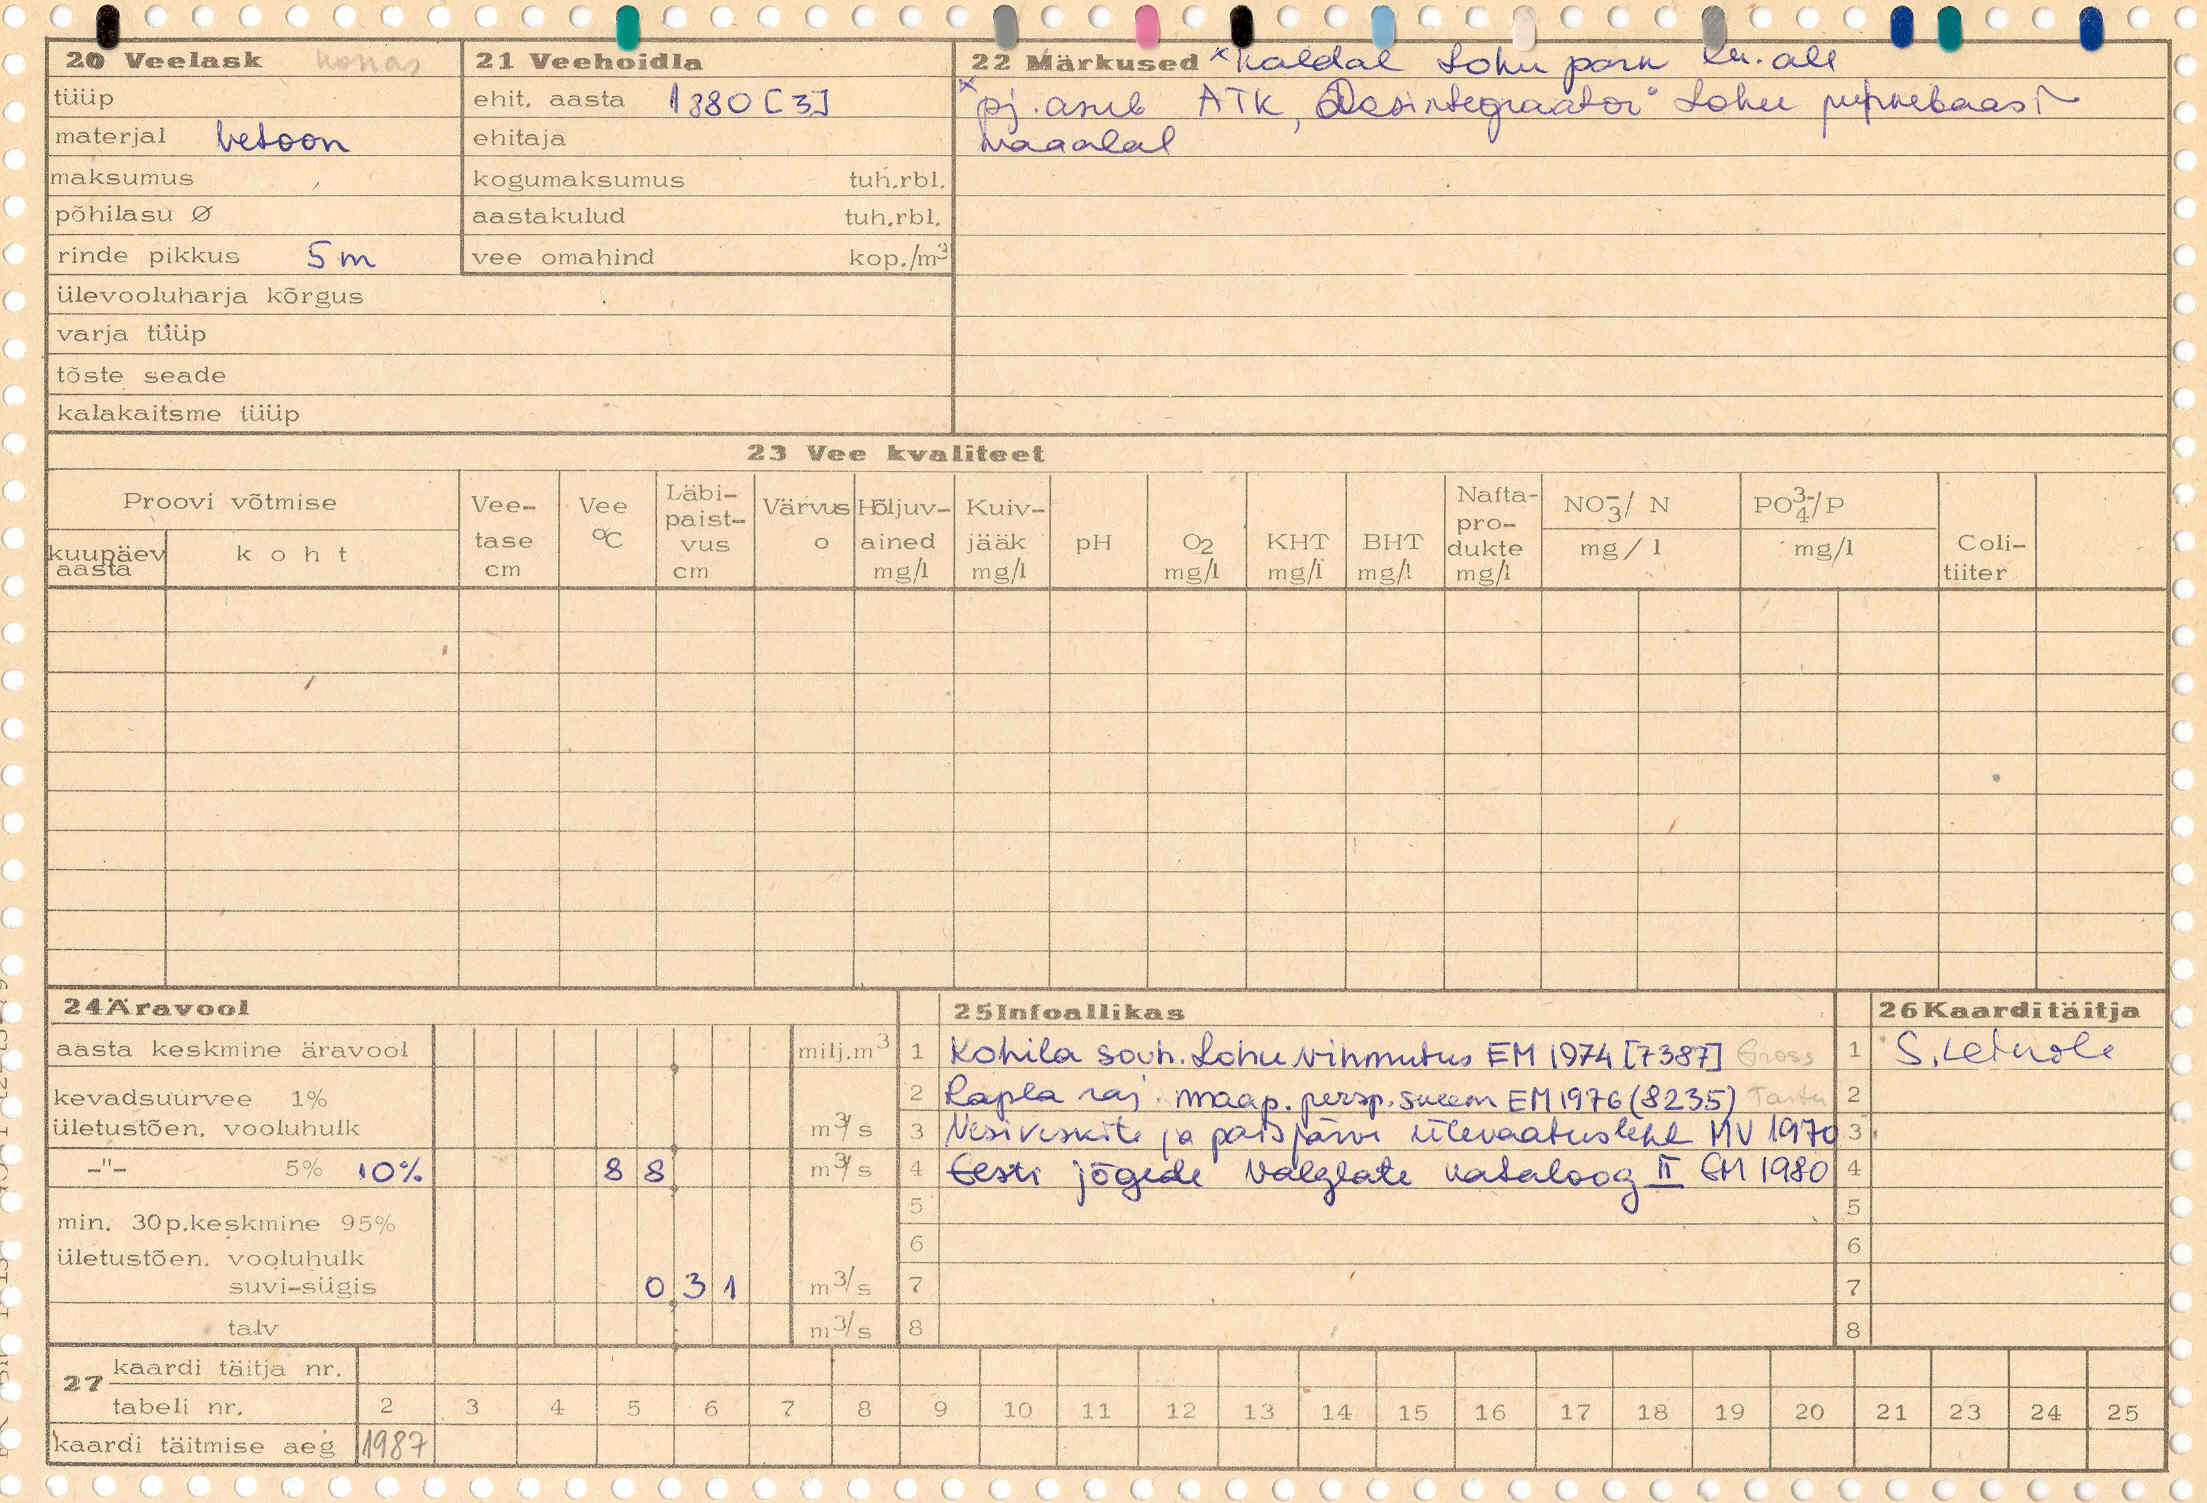 20 Veelask korras
tüüp
materjal betoon
maksumus
põhilasu Ø
rinde pikkus 5 m
ülevooluharja kõrgus
varja tüüp
tõste seade
kalakaitsme tüüp
21 Veehoidla
ehit. aasta 1880 [3]
ehitaja
kogumaksumus tuh.rbl.
aastakulud tuh.rbl.
vee omahind kop./m³
22 Märkused *kaldal Lohu park lk. all
*pj. asub ATK „Desintegraator" Lohu puhkebaasi
maaalal
23 Vee kvaliteet
Proovi võtmise
kuupäev aasta
koht
Vee-tase cm
Vee °C
Läbi-paist-vus cm
Värvus o
Hõljuv-ained mg/l
Kuiv-jääk mg/l
pH
O2 mg/l
KHT mg/l
BHT mg/l
Nafta-pro-dukte mg/l
NO3-/ N mg/l
PO4 3-/P mg/l
Coli-tiiter
24 Äravool
aasta keskmine äravool milj.m³
kevadsuurvee 1%
ületustõen. vooluhulk m³/s
-"- 5% 10% 8 8 m³/s
min. 30p.keskmine 95%
ületustõen. vooluhulk
suvi-sügis 0 3 1 m³/s
talv m³/s
25 Infoallikas
1 Kohila sovh. Lohu vihmutus EM 1974 [7387] Gross
2 Rapla raj. maap. persp. skeem EM 1976 (8235) Tartu
3 Vesiveskite ja paisjärve ülevaatusleht MV 1970
4 Eesti jõgede valglate kataloog II EM 1980
5
6
7
8
26 Kaarditäitja
1 S.
2
3
4
5
6
7
8
27 kaardi täitja nr.
tabeli nr. 2 3 4 5 6 7 8 9 10 11 12 13 14 15 16 17 18 19 20 21 23 24 25
kaardi täitmise aeg 1987